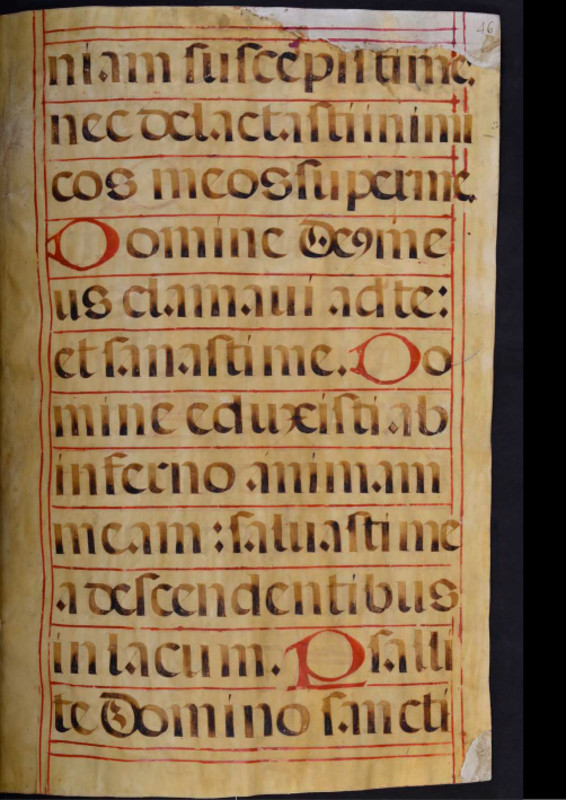 46
niam suscepisti me.
nec delectasti inimi
cos meos super me.
Domine de9 me
us clamaui ad te:
et sanasti me. Do
mine eduxisti ab
inferno animam
meam : saluasti me
a descendentibus
in lacum. Psalli
te Domino sancti